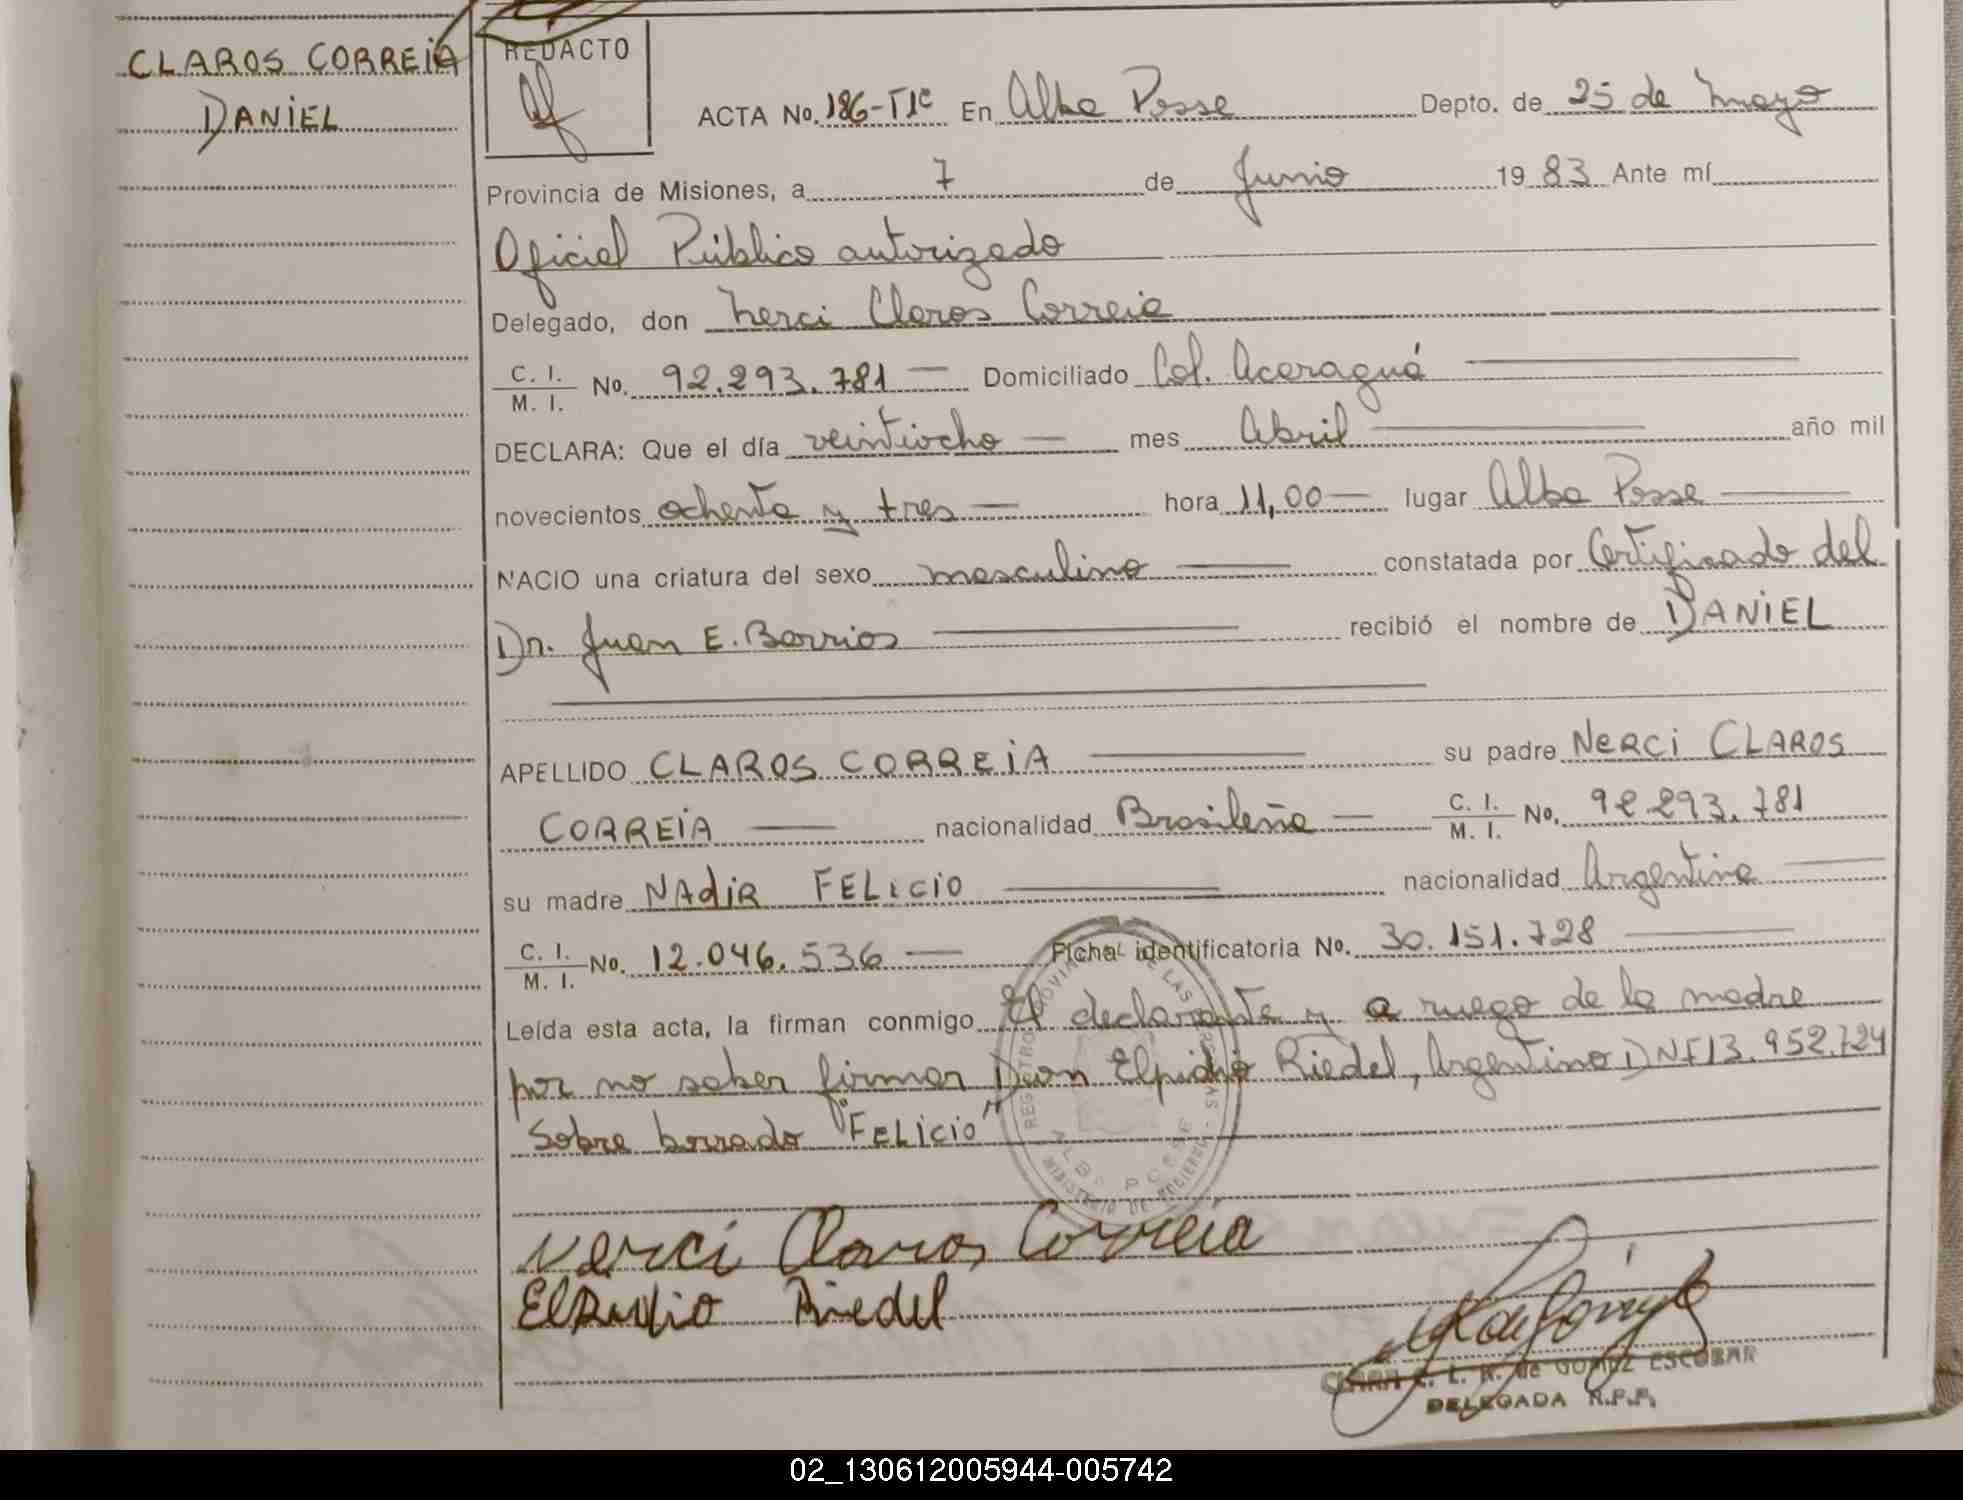 CLAROS CORREIA
DANIEL
REDACTO
ACTA No. 186-T1º En Alba Posse Depto. de 25 de Mayo
Provincia de Misiones, a 7 de Junio 1983 Ante mí
Oficial Público autorizado
Delegado, don Nerci Claros Correia
C. I. / M. I. No. 92.293.781 — Domiciliado Col. Acaraguá
DECLARA: Que el día veintiocho — mes Abril año mil
novecientos ochenta y tres — hora 11,00 — lugar Alba Posse
NACIO una criatura del sexo masculino constatada por Certificado del
Dr. Juan E. Barrios recibió el nombre de DANIEL
APELLIDO CLAROS CORREIA su padre NERCI CLAROS
CORREIA nacionalidad Brasileña — C. I. / M. I. No. 92.293.781
su madre NADIR FELICIO nacionalidad Argentina
C. I. / M. I. No. 12.046.536 — Ficha identificatoria No. 30.151.728
Leída esta acta, la firman conmigo El declarante y a ruego de la madre
por no saber firmar Don Elpidio Riedel, Argentino DNI 13.952.724
Sobre borrado "FELICIO"
REGISTRO PROVINCIAL DE LAS PERSONAS
ALBA POSSE
MINISTERIO DE GOBIERNO
Nerci Claros Correia
Elpidio Riedel
CLARA L. R. de GOMEZ ESCOBAR
DELEGADA R.P.P.
02_130612005944-005742